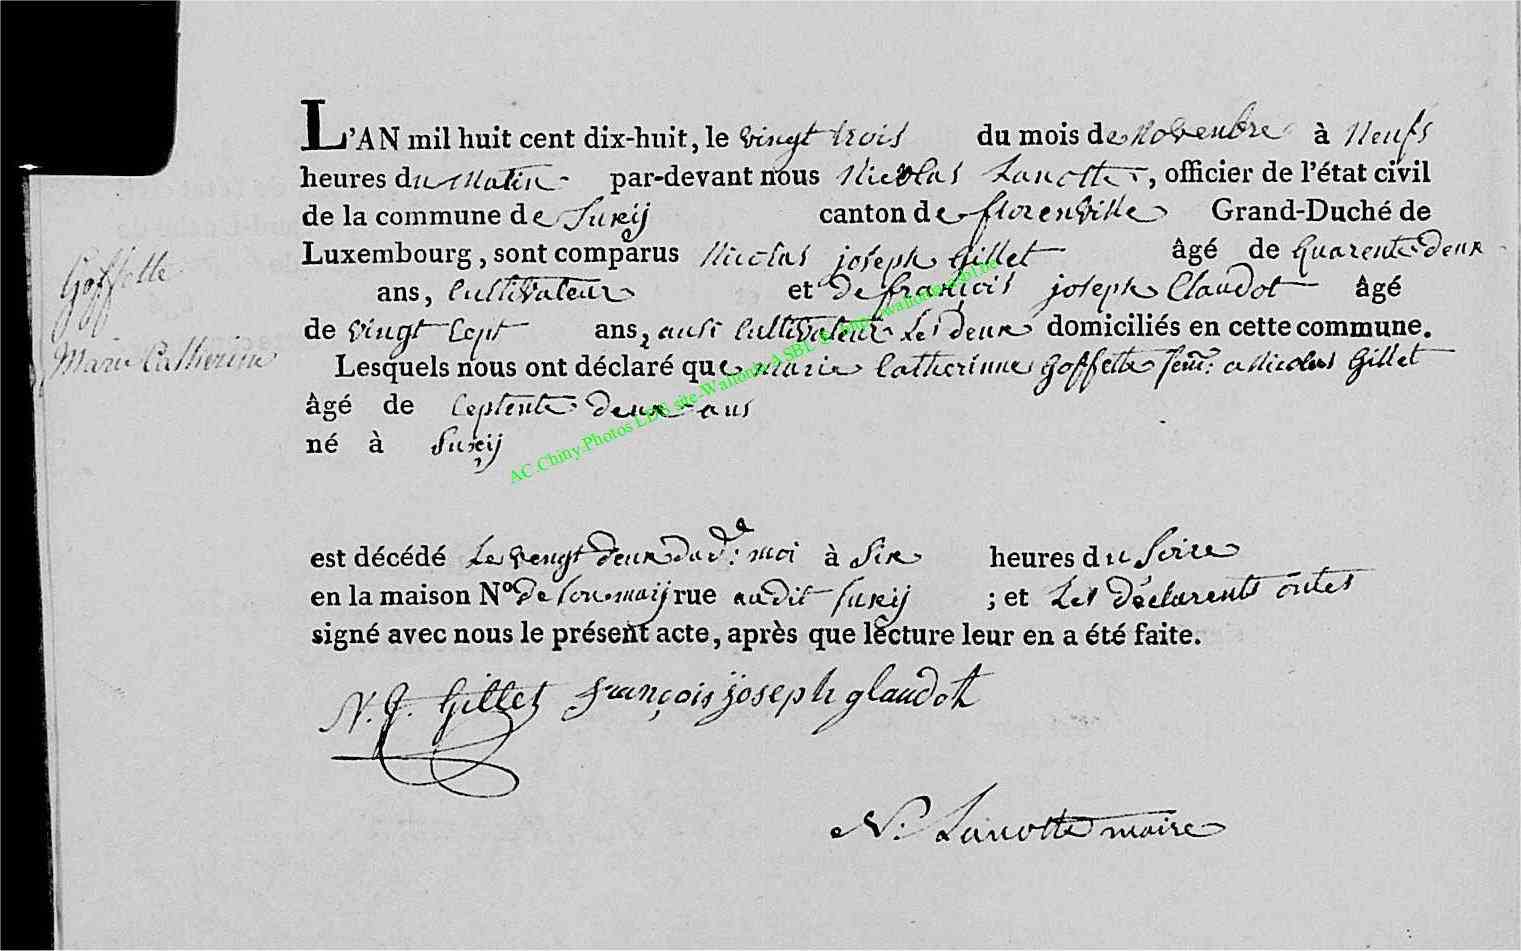 L'AN mil huit cent dix-huit, le vingt trois du mois de Novenbre à Neufs
heures du Matin par-devant nous Nicolas Lanotte, officier de l'état civil
de la commune de Suxÿ canton de florenville Grand-Duché de
Luxembourg, sont comparus Nicolas joseph Gillet âgé de quarente deux
ans, Cultivateur et de françois joseph Claudot âgé
de vingt Sept ans, ausi Cultivateur Les deux domiciliés en cette commune.
Lesquels nous ont déclaré que marie Catherinne Goffette fem: a Nicolas Gillet
âgé de Septente deux ans
né à Suxÿ
Goffette
Marie Catherine
AC.Chiny.Photos LDB site-Wallonia ASBL
est décédé Le vengt deux dud: moi à Six heures du Soire
en la maison No de son marÿ rue audit Suxÿ ; et Les déclarents ontes
signé avec nous le présent acte, après que lecture leur en a été faite.
N. J. Gillet françois joseph glaudot
N: Lanotte maire